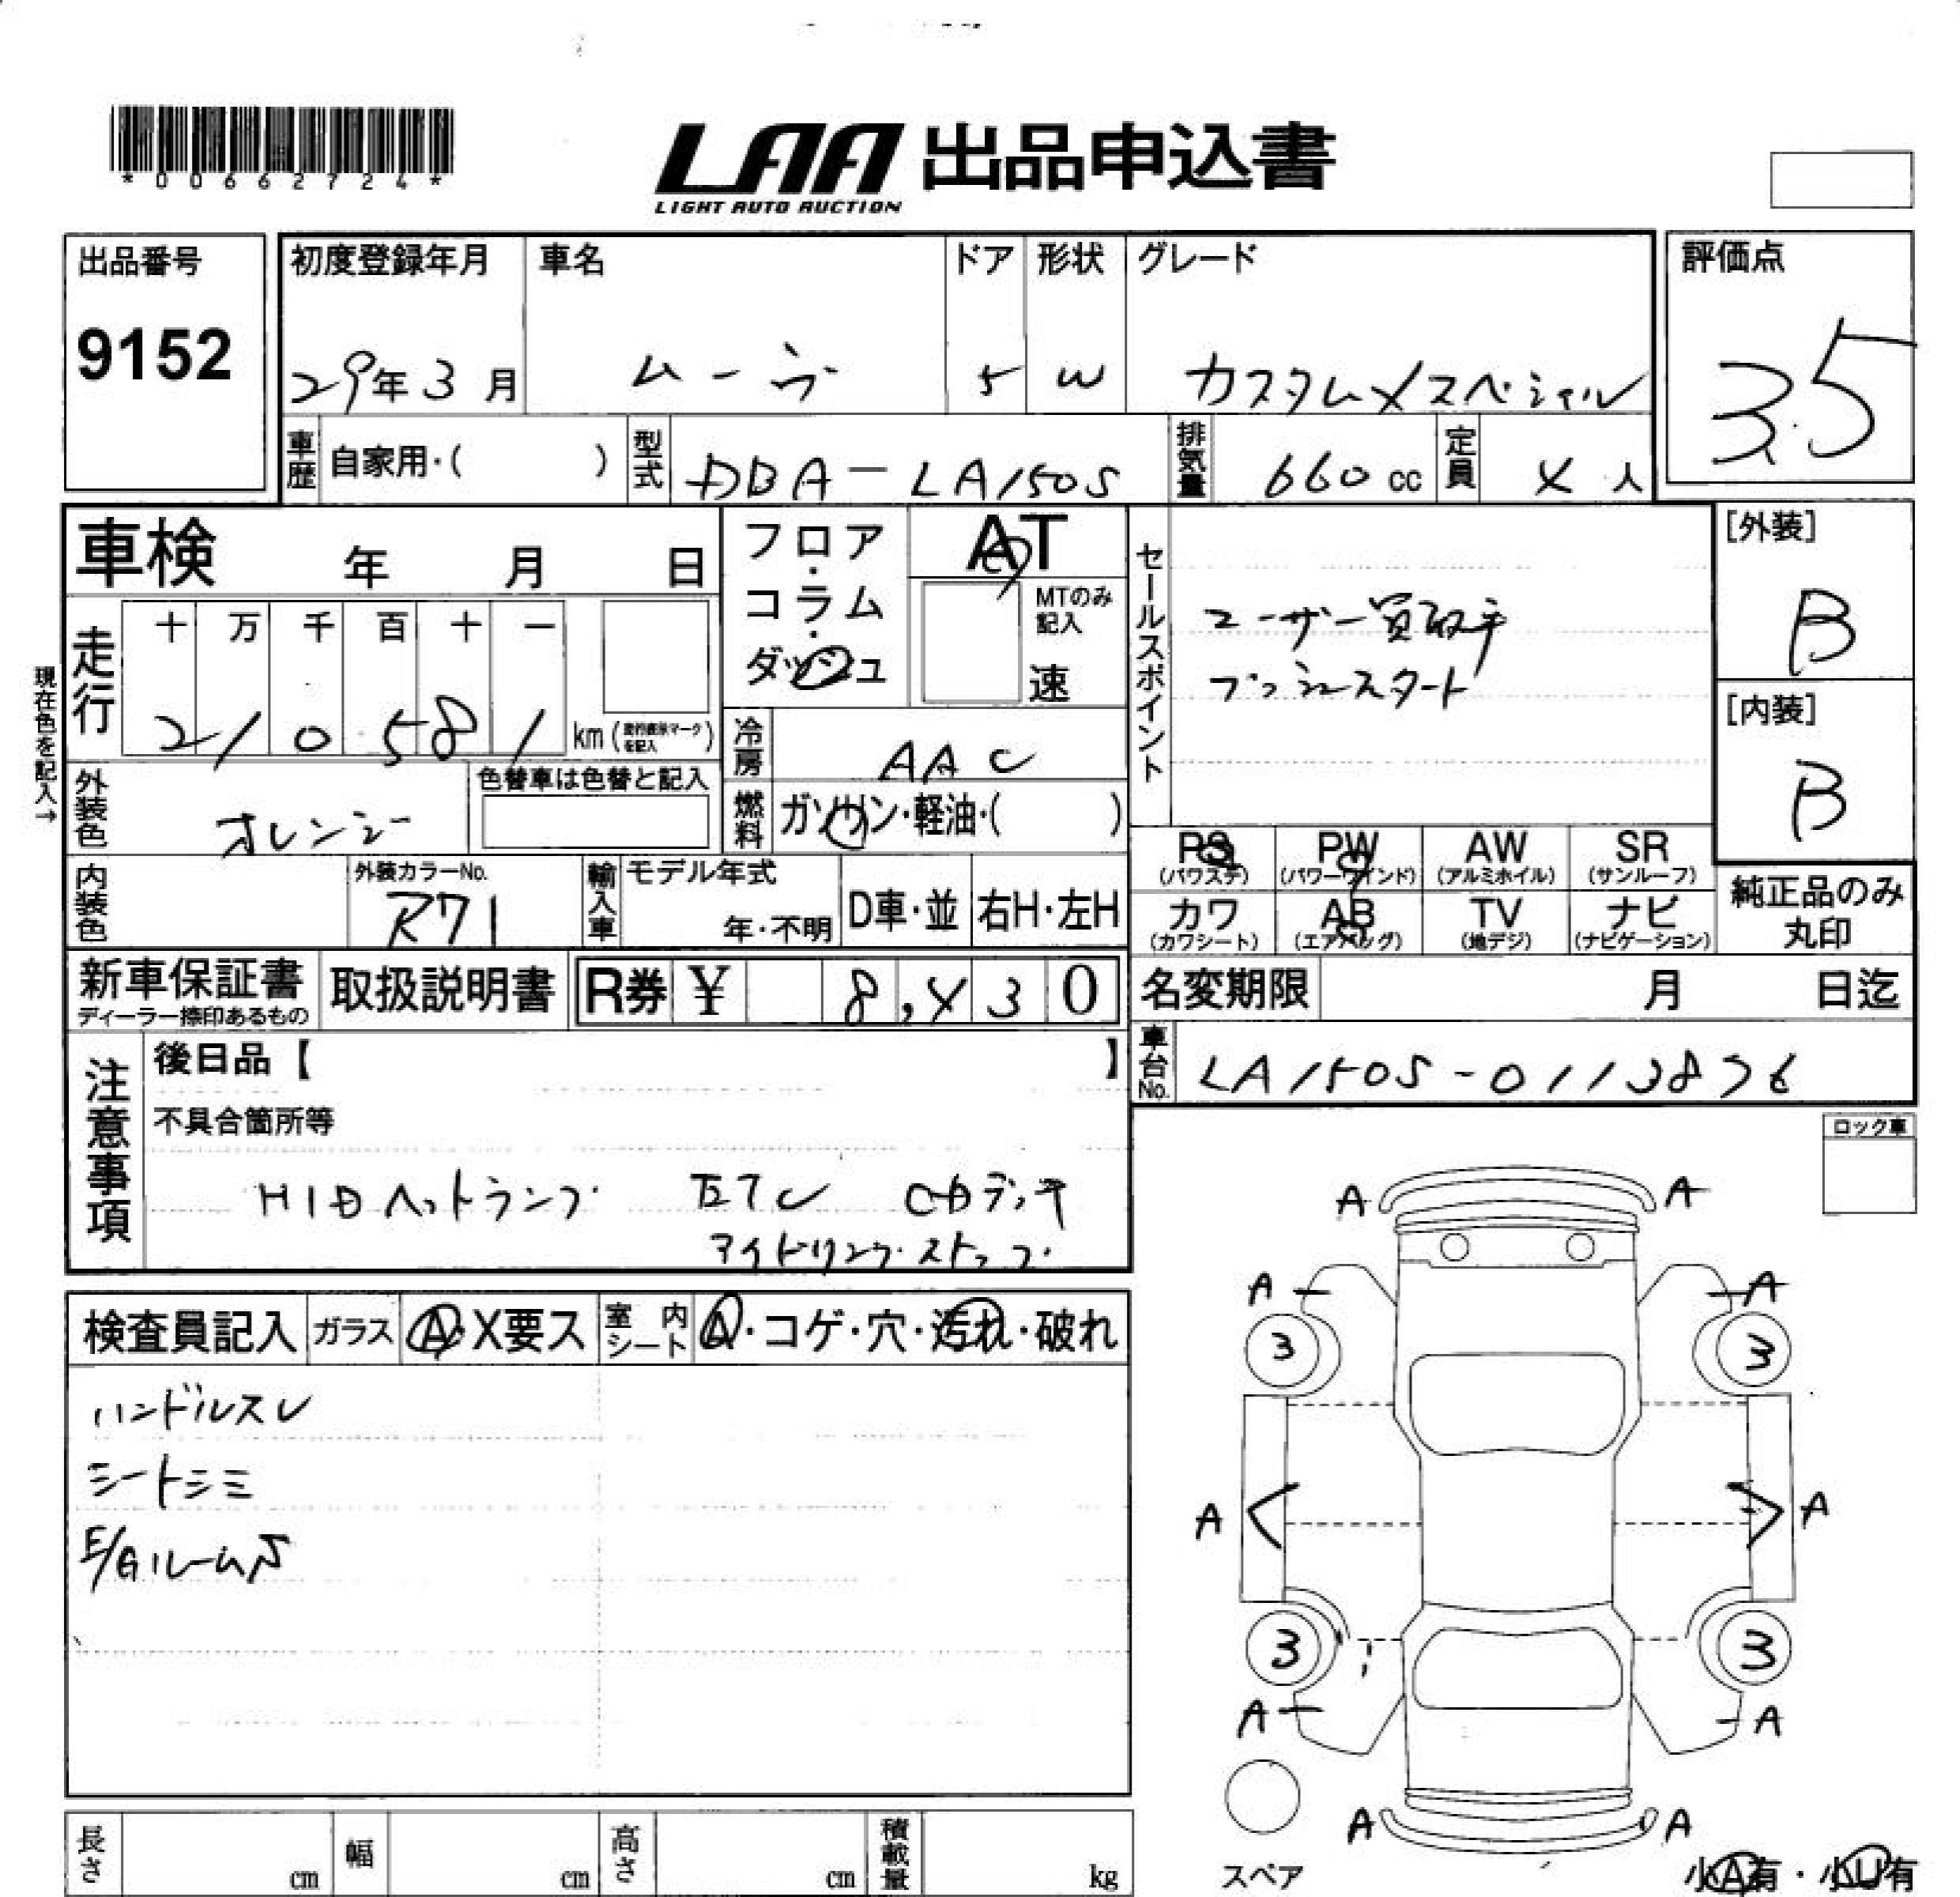 *00662724*
LAA 出品申込書
LIGHT AUTO AUCTION
出品番号
9152
初度登録年月 車名 ドア 形状 グレード 評価点
29年3月 ムーヴ 5 W カスタムXスペシャル 3.5
車歴 自家用・( ) 型式 DBA-LA150S 排気量 660cc 定員 4人
車検 年 月 日
フロア・コラム・ダッシュ
AT
MTのみ記入
速
セールスポイント
ユーザー買取車
プッシュスタート
[外装]
B
[内装]
B
現在色を記入→
走行 十 万 千 百 十 一
210581 km (走行表示マークを記入)
冷房 AAC
外装色 オレンジ 色替車は色替と記入
燃料 ガソリン・軽油・( )
内装色 外装カラーNo. R71
輸入車 モデル年式 年・不明 D車・並 右H・左H
PS (パワステ) PW (パワーウインド) AW (アルミホイル) SR (サンルーフ)
カワ (カワシート) AB (エアバッグ) TV (地デジ) ナビ (ナビゲーション)
純正品のみ丸印
新車保証書 ディーラー捺印あるもの 取扱説明書 R券 ¥ 8,430
名変期限 月 日迄
車台No. LA150S-0113876
注意事項
後日品【 】
不具合箇所等
HIDヘットランプ ETC CDデッキ
アイドリングストップ
ロック車
検査員記入 ガラス A・X要ス 室内シート A・コゲ・穴・汚れ・破れ
ハンドルスレ
シートシミ
E/GルームS
A A
A A
3 3
A A
3 3
A A
A A
スペア
小A有・小U有
長さ cm 幅 cm 高さ cm 積載量 kg